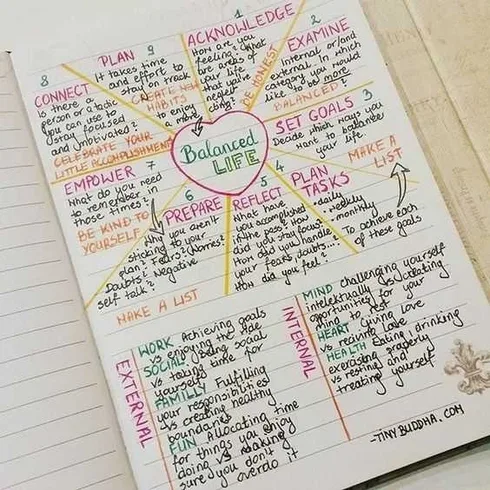 1
ACKNOWLEDGE
How are you
feeling? What
are areas of
your life
that you're
neglecting?
BE HONEST
2
EXAMINE
Internal or/and
external. In which
category you would
like to be more
BALANCED?
3
SET GOALS
Decide which ways you
want to balance
your life.
MAKE A
LIST
4
PLAN
TASKS
-daily
-weekly
-monthly
To achieve each
of these goals
5
REFLECT
What have
you accomplished
in the past? How
did you stay focused?
How did you handle
your fears, doubts...
How did you feel?
6
PREPARE
Why you aren't
sticking to your
plan? Fears? Worries?
Doubts? Negative
self talk?
MAKE A LIST
7
EMPOWER
What do you need
to remember in
those times?
BE KIND TO
YOURSELF
8
CONNECT
Is there a
person or a tactic
you can use to
stay focused
and motivated?
CELEBRATE YOUR
LITTLE ACCOMPLISHMENTS
9
PLAN
It takes time
and effort to
stay on track
CREATE NEW
HABITS
to enjoy
a more
Balanced
LIFE
EXTERNAL
WORK Achieving goals
vs enjoying the ride
SOCIAL Being social
vs taking time for
yourself
FAMILY Fulfilling
your responsibilities
vs creating healthy
boundaries
FUN Allocating time
for things you enjoy
doing vs making
sure you don't
overdo it
INTERNAL
MIND challenging yourself
intelectually vs creating
opportunities for your
mind to rest
HEART Giving love
vs reciving love
HEALTH Eating, drinking
exercising properly
vs resting and
treating yourself
-TINYBUDDHA.COM